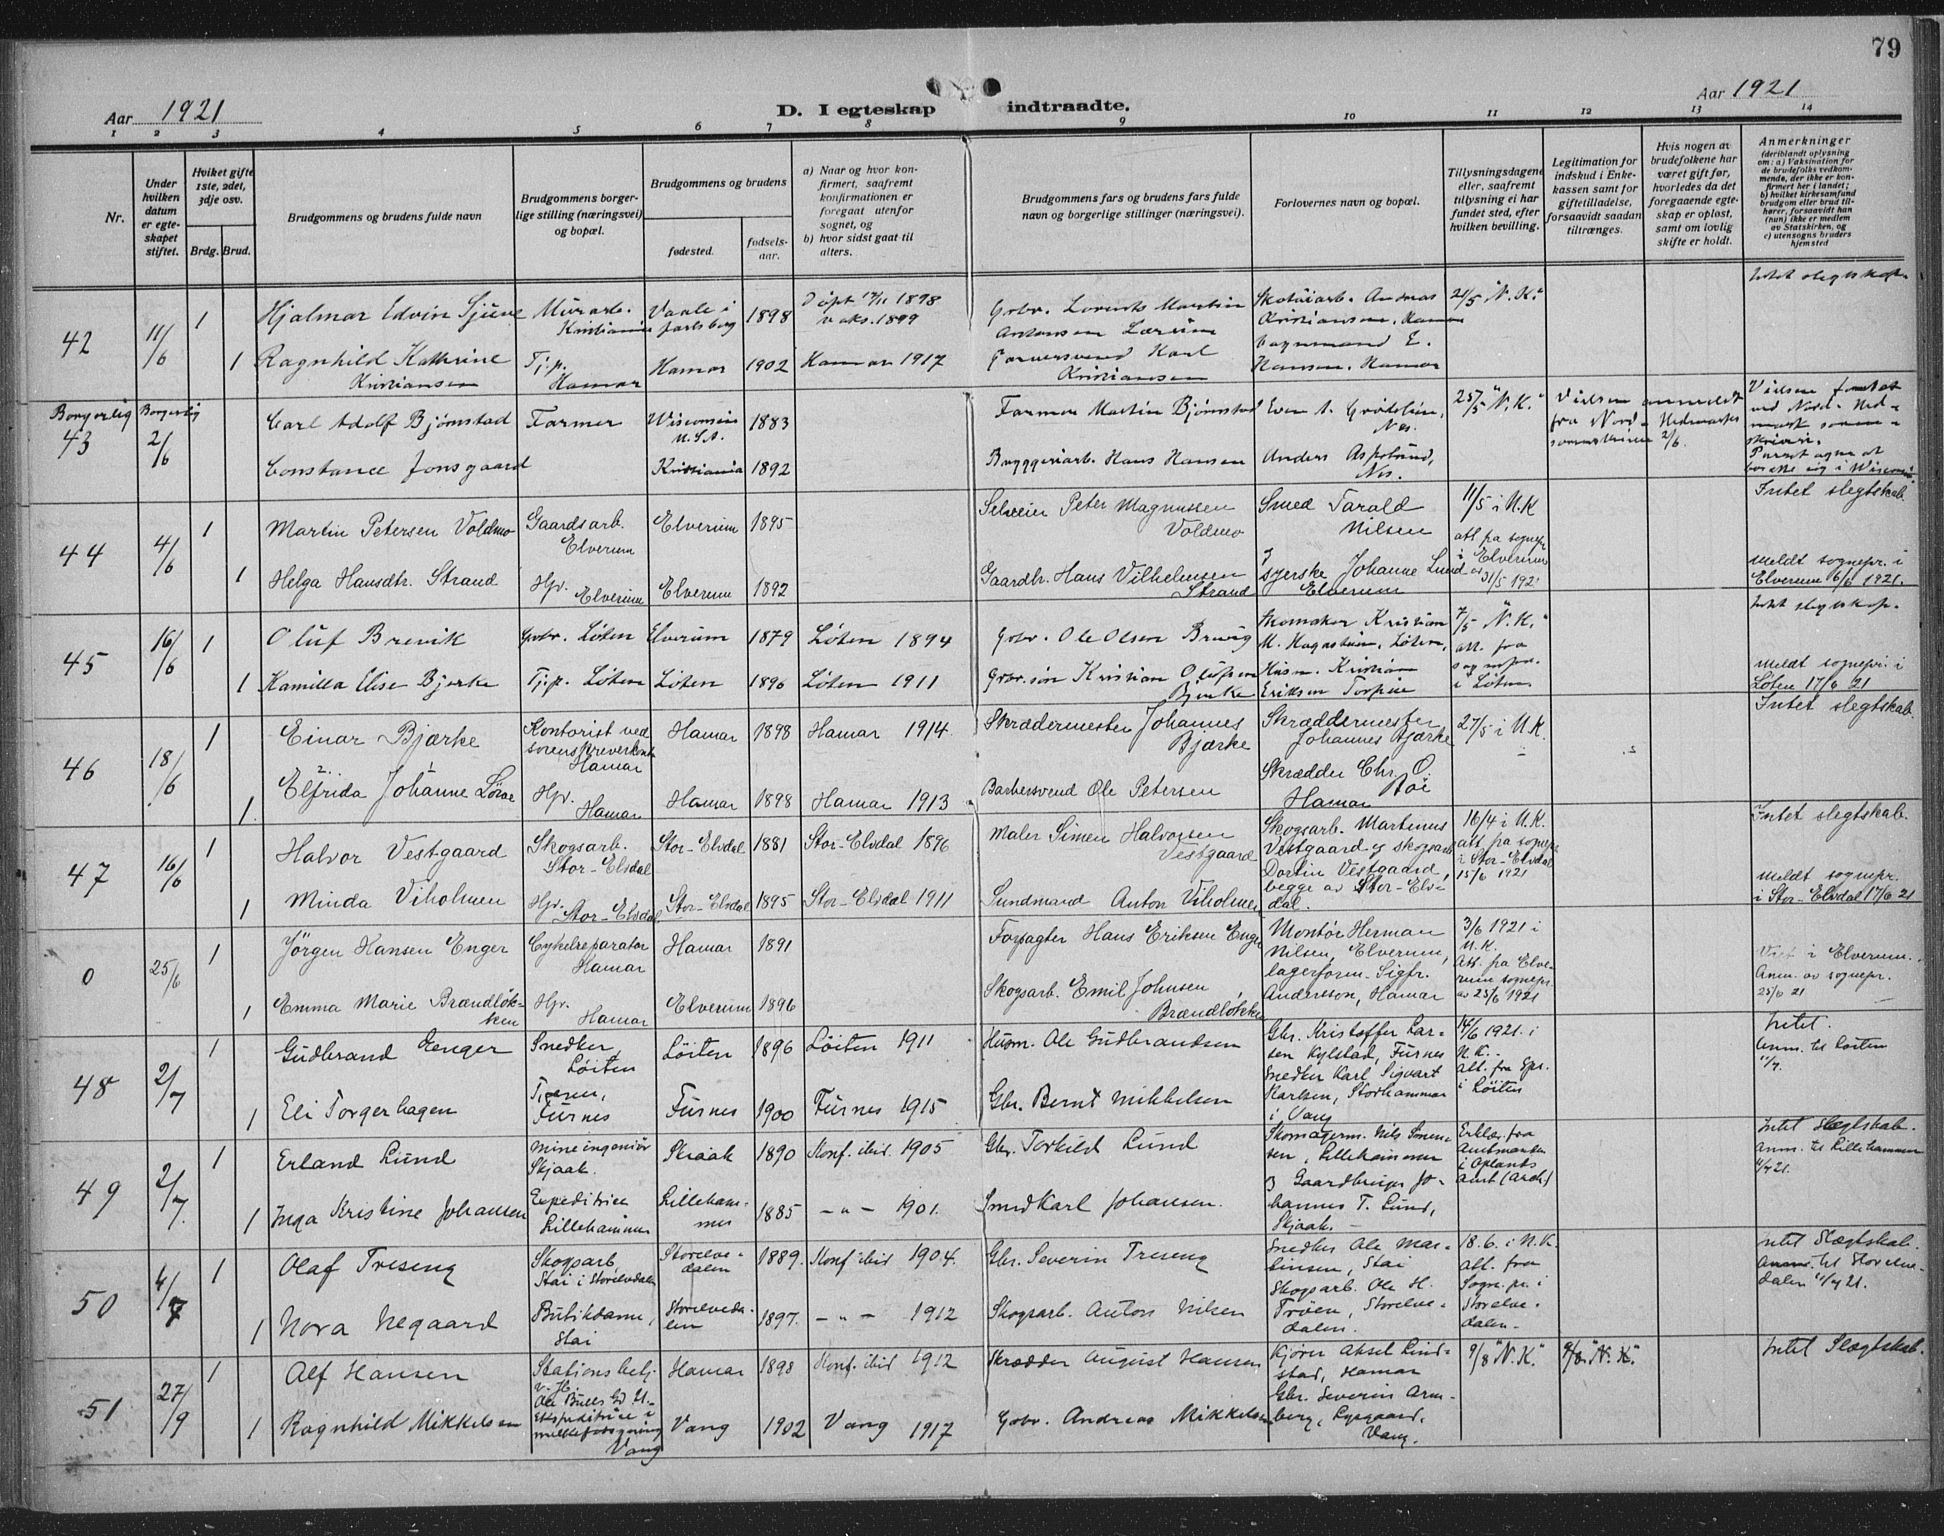 79
Aar 1921
D. I egteskap indtraadte.
Aar 1921
1 2 3 4 5 6 7 8 9 10 11 12 13 14
Nr.
Under hvilken datum er egteskapet stiftet.
Hvilket gifte 1ste, 2det, 3dje osv.
Brdg. Brud.
Brudgommens og brudens fulde navn
Brudgommens borgerlige stilling (næringsvei) og bopæl.
Brudgommens og brudens
fødested.
fødselsaar.
a) Naar og hvor konfirmert, saafremt konfirmationen er foregaat utenfor sognet, og
b) hvor sidst gaat til alters.
Brudgommens fars og brudens fars fulde navn og borgerlige stillinger (næringsvei).
Forlovernes navn og bopæl.
Tillysningsdagene eller, saafremt tillysning ei har fundet sted, efter hvilken bevilling.
Legitimation for indskud i Enkekassen samt for giftetilladelse, forsaavidt saadan tiltrænges.
Hvis nogen av brudefolkene har været gift før, hvorledes da det foregaaende egteskap er opløst, samt om lovlig skifte er holdt.
Anmerkninger
(deriblandt oplysning om: a) Vaksination for de brudefolks vedkommende, der ikke er konfirmert her i landet; b) hvilket kirkesamfund brudgom eller brud tilhører, forsaavidt han (hun) ikke er medlem av Statskirken, og c) utensogns bruders hjemsted
42 11/6 1 Hjalmar Edvin Murarb. Kristiania Vaale i Jarlsberg 1898 Døpt 17/11 1898 vaks. 1899 Gbr. Lorents Martin Antonsen Skotøiarb. Andreas Kristiansen, Hamar 21/5 "N.K." Intet slegtskap.
1 Ragnhild Kathrine Kristiansen Tj.p. Hamar Hamar 1902 Hamar 1917 Garversvend Karl Kristiansen Vognmand E. Hansen, Hamar
Borgerlig 43 Borgerlig 2/6 Carl Adolf Bjørnstad Farmer Wisconsin U.S.A. 1883 Farmer Martin Bjørnstad Even A. Nes. 25/5 "N.K." Vielsen anmeldt fra Nord-Hedemarken sorenskriveri 2/6. Vielsen foretat ved Nord-Hedmark sorenskriveri. Parret agter at bosætte sig i Wisconsin.
Constance Jonsgaard Kristiania 1892 Bryggeriarb. Hans Hansen Anders Nes.
44 4/6 1 Martin Petersen Voldmo Gaardsarb. Elverum Elverum 1895 Selveier Peter Magnussen Voldmo Smed Tarald Nilsen 11/5 i N.K att. fra sognepr. i Elverum av 31/5 1921 Intet slegtskab.
1 Helga Hansdtr. Strand Hpr. Elverum Elverum 1892 Gaardbr. Hans Vilhelmsen Strand syerske Johanne Lund Elverum Meldt sognepr. i Elverum 6/6 1921.
45 16/6 1 Oluf Brenik Gvbr. Løten Elverum 1879 Løten 1894 Gvbr. Ole Olsen Skomaker Kristian M. Løten, 7/5 "N.K." att. fra sognepr. i Løten Intet slegtskap.
1 Kamilla Elise Bjerke Tj.p. Løten Løten 1896 Løten 1911 Gvbr.søn Kristian Olufsen Bjerke Husm. Kristian Eriksen Meldt sognepr. i Løten 17/6 21
46 18/6 1 Einar Bjærke Kontorist ved sorenskriverkont. Hamar Hamar 1898 Hamar 1914. Skrædermester Johannes Bjærke Skræddermester Johannes Bjærke 27/5 i N.K. Intet slegtskab.
1. Elfrida Johanne Hpr. Hamar Hamar 1898 Hamar 1913 Barbersvend Ole Petersen Skrædder Chr. O. Bøi Hamar
47 16/6 1 Halvor Vestgaard Skogsarb. Stor-Elvdal Stor-Elvdal 1881 Stor-Elvdal 1896 Maler Simen Halvorsen Vestgaard Skogsarb. Martinus Vestgaard og skogsarb. Dortin Vestgaard, begge av Stor-Elvdal. 16/4 i N.K. att. fra sognepr. i Stor-Elvdal 15/6 1921 Intet slegtskab.
1 Minda Viholmen Hpr. Stor-Elvdal Stor-Elvdal 1895 Stor-Elvdal 1911 Sundmand Anton Viholmen Meldt sognepr. i Stor-Elvdal 17/6 21
0 25/6 1 Jörgen Hansen Enger Cykelreparatør Hamar Hamar 1891 Forpagter Hans Eriksen Enger Montør Herman Nilsen, Elverum, lagerform. Sigfr. Andersson, Hamar 3/6 1921 i N.K. Att. fra Elverum sognepr. av 25/6 1921 Viet i Elverum. Anm. av sognepr. 25/6 21
1 Emma Marie Brændløkken Hpr. Hamar Elverum 1896 Skogsarb. Emil Johnsen Brændløkken
48 2/7 1 Gudbrand Eenger Snedker Löiten Löiten 1896 Löiten 1911 Husm. Ole Gudbrandsen Gbr. Kristoffer Larsen Kylstad, Furnes Snedker Karl Sigvart Karlsen, Storhammar i Vang 14/6 1921. i N.K. Att. fra Spr. i Löiten Intet. Anm. til Löiten 11/7.
1 Eli Torgerhagen Furnes Furnes 1900 Furnes 1915 Gbr. Bernt Mikkelsen
49 2/7. 1 Erland Lund Mineingeniør Skjaak. Skiaak 1890 Konf. ibid. 1905 Gbr. Torkild Lund Skomagerm. Nils Simensen, Lillehammer og Gaardbruger Johannes T. Lund, Skjaak. Erklær. fra Amtmanden i Oplands Amt (Arch.) Intet Slegtskab. Anm. til Lillehammer 11/7 21.
1 Inga Kristine Johansen Expeditrice Lillehammer Lillehammer 1885 - " - 1901. Smed Karl Johansen.
50 4/7 1 Olaf Treseng Skogsarb. Stai i Storelvedalen Storelvedalen 1889. Konf. ibid 1904. Gbr. Severin Treseng Snedker Ole Martinsen, Stai Skogsarb. Ole H. Trøen, Storelvedalen. 18.6. i N.K. Att. fra Sogne.pr. i Storelvedalen. Intet Slægtskab. Anm. til Storelvedalen 11/7 21.
1 Nora Negaard Butikdame, Stai Storelvedalen 1897. - " - 1912 Skogsarb. Anton Nilsen
51 27/9 1 Alf Hansen Stationsbetj. Ole Bulls Gd 21. Hamar 1898 Konf. ibid 1912 Skrædder August Hansen Kjører Aksel Lindstad, Hamar 9/8 "N.K." 9/8 "N.K." Intet Slægtskab.
1 Ragnhild Mikkelsen Ekspeditrice i melkeforsyning Vang Vang 1902 Vang 1917 Gvbr. Andreas Mikkelsen Gbr. Severin Armberg, Vang.